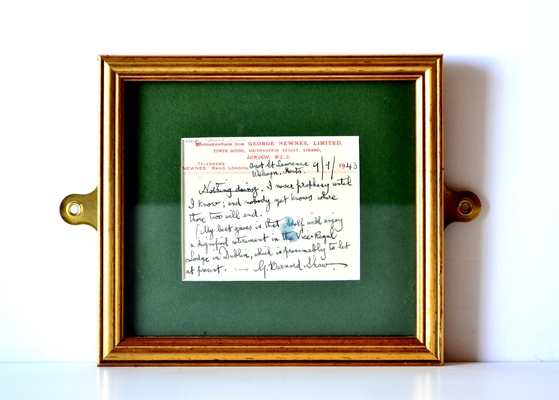 Memorandum from GEORGE NEWNES, LIMITED.
TOWER HOUSE, SOUTHAMPTON STREET, STRAND,
LONDON, W.C.2.
TELEGRAMS:
NEWNES' RAND, LONDON.
Ayot St Lawrence
Welwyn, Herts.
9/1/1943
Nothing doing. I never prophesy until
I know; and nobody yet knows where
those two will end.
(My best guess is that Adolf will enjoy
a dignified retirement in the Vice-Regal
Lodge in Dublin, which is presumably to let
at present. G. Bernard Shaw